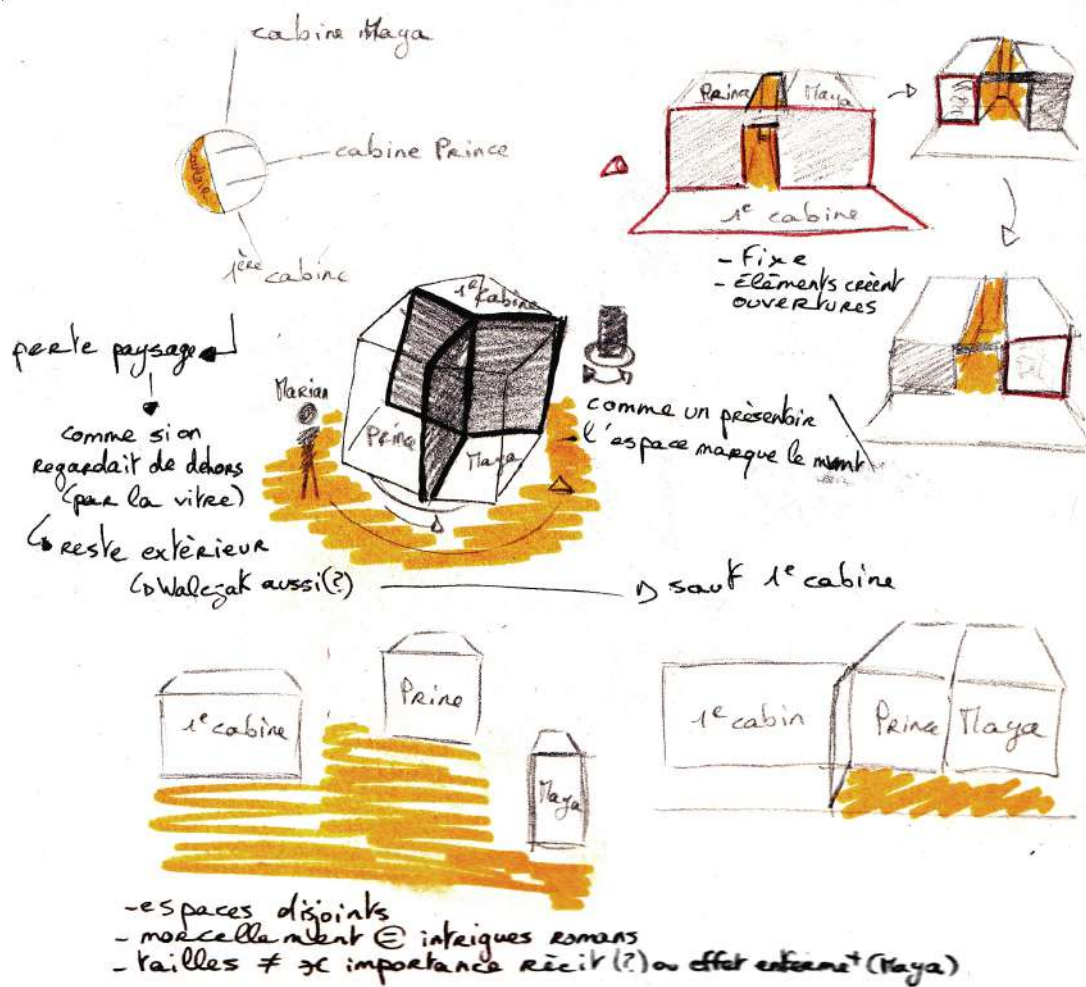 cabine Maya
cabine Prince
1ère cabine
Prince
Maya
1e cabine
- Fixe
- Éléments créent
ouvertures
perte paysage
comme si on
regardait de dehors
(par la vitre)
reste extérieur
Walczak aussi(?)
sauf 1e cabine
Marian
1e Cabine
Prince
Maya
comme un présentoir
l'espace marque le
1e cabine
Prine
Maya
1e cabin
Prince
Maya
- espaces disjoints
- morcellement = intrigues romans
- tailles ≠ importance récit (?) ou effet enferme+ (Maya)